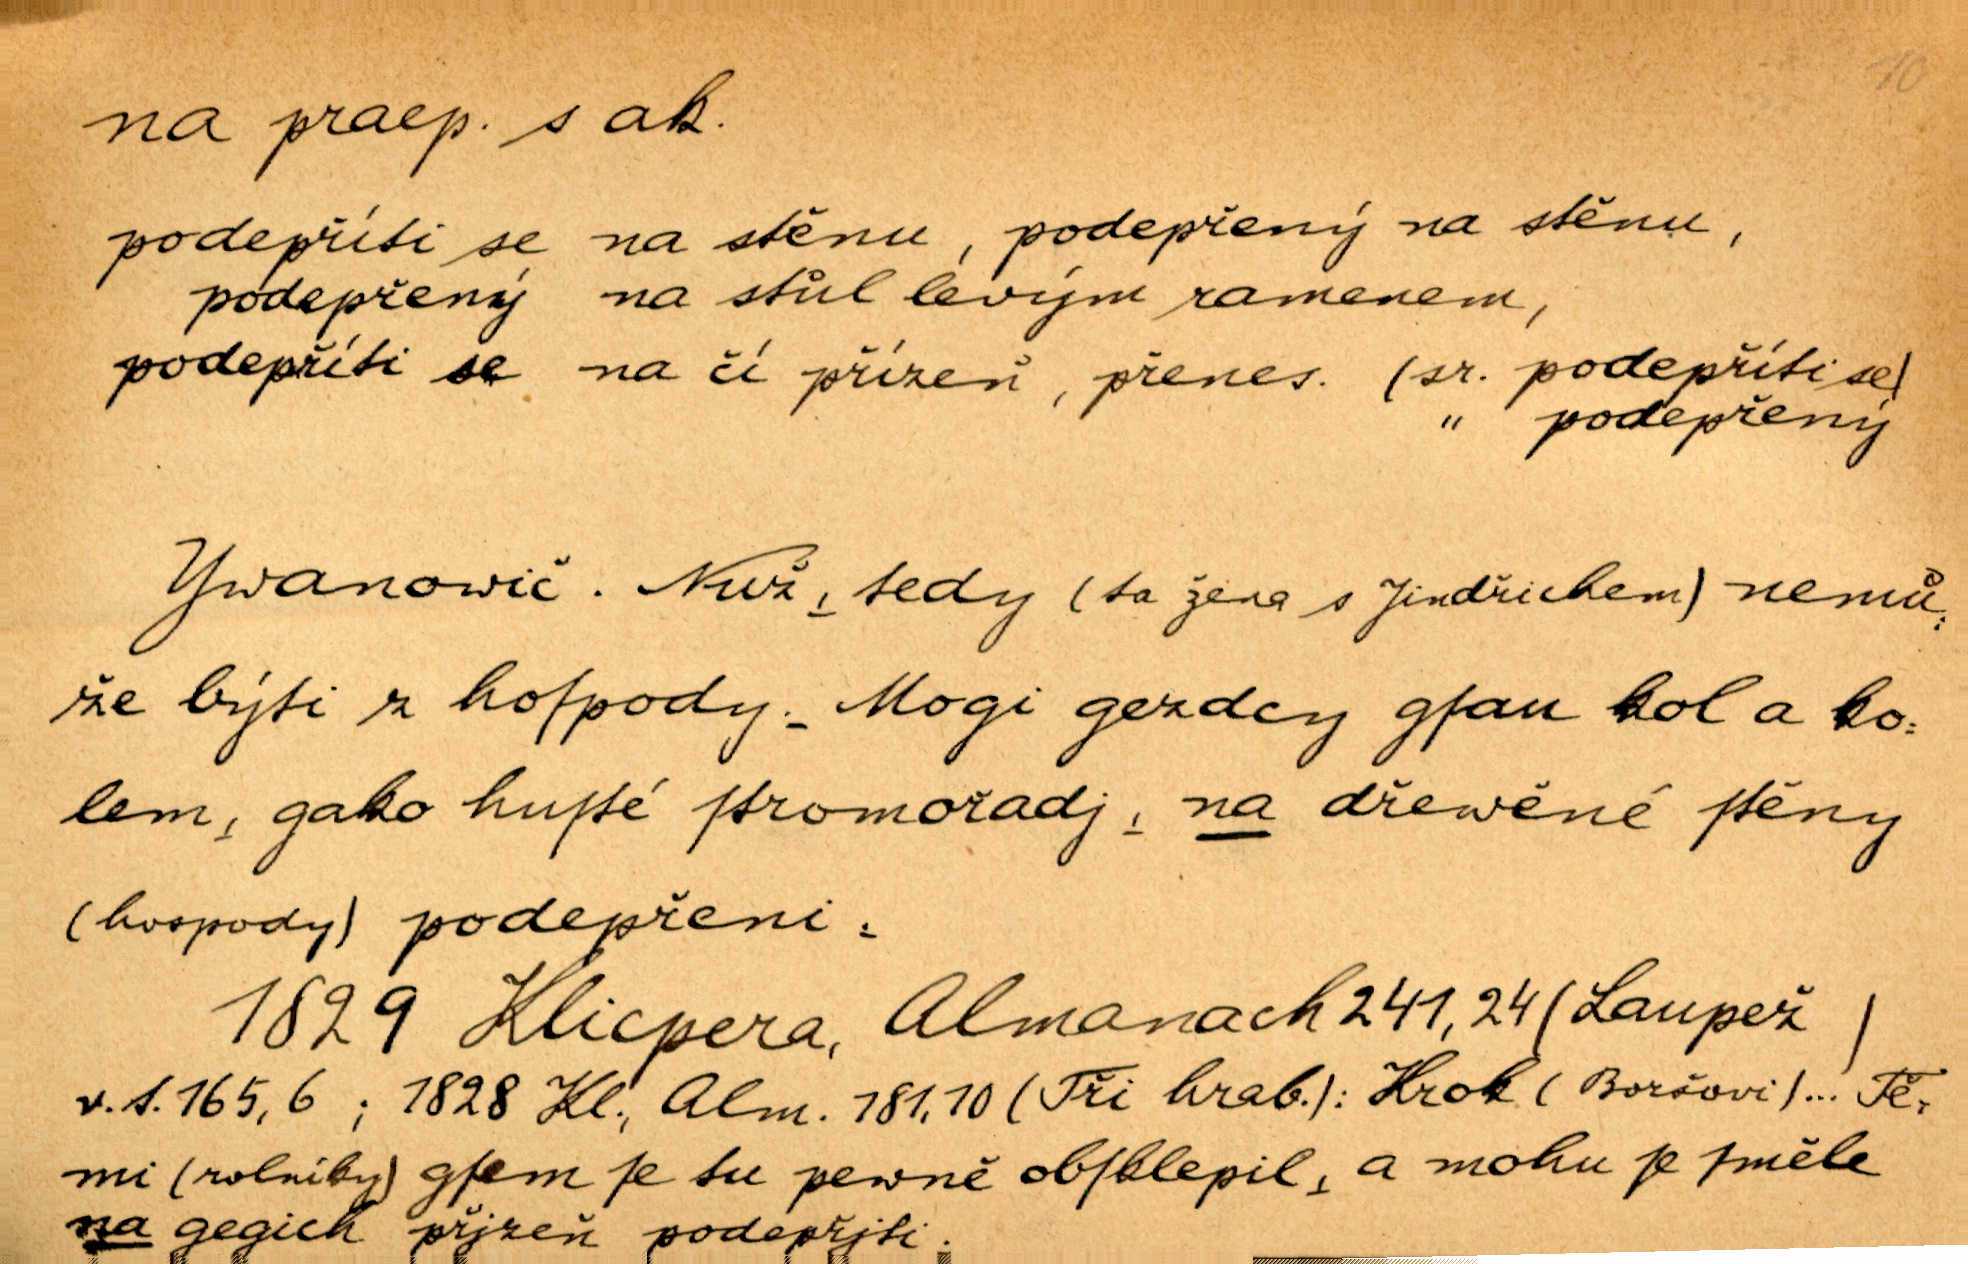 10
na praep. s ak.
podepříti se na stěnu, podepřený na stěnu,
podepřený na stůl levým ramenem,
podepříti se na čí přízeň, přenes. (sr. podepříti se)
" podepřený
Ywanowič. Nuž, tedy (ta žena s Jindřichem) nemů:
že býti z hoſpody. Mogi gezdcy gſau kol a ko:
lem, gako huſté ſtromořadj, na dřewěné ſtěny
(hospody) podepřeni.
1829 Klicpera, Almanach 241,24 (Laupež)
v. t. 165,6 ; 1828 Kl., Alm. 181,10 (Tři hrab.): Krok (Boršovi)... Tě:
mi (rolníky) gſem ſe tu pewně obſklepil, a mohu ſe ſměle
na gegich přjzeň podepřjti.